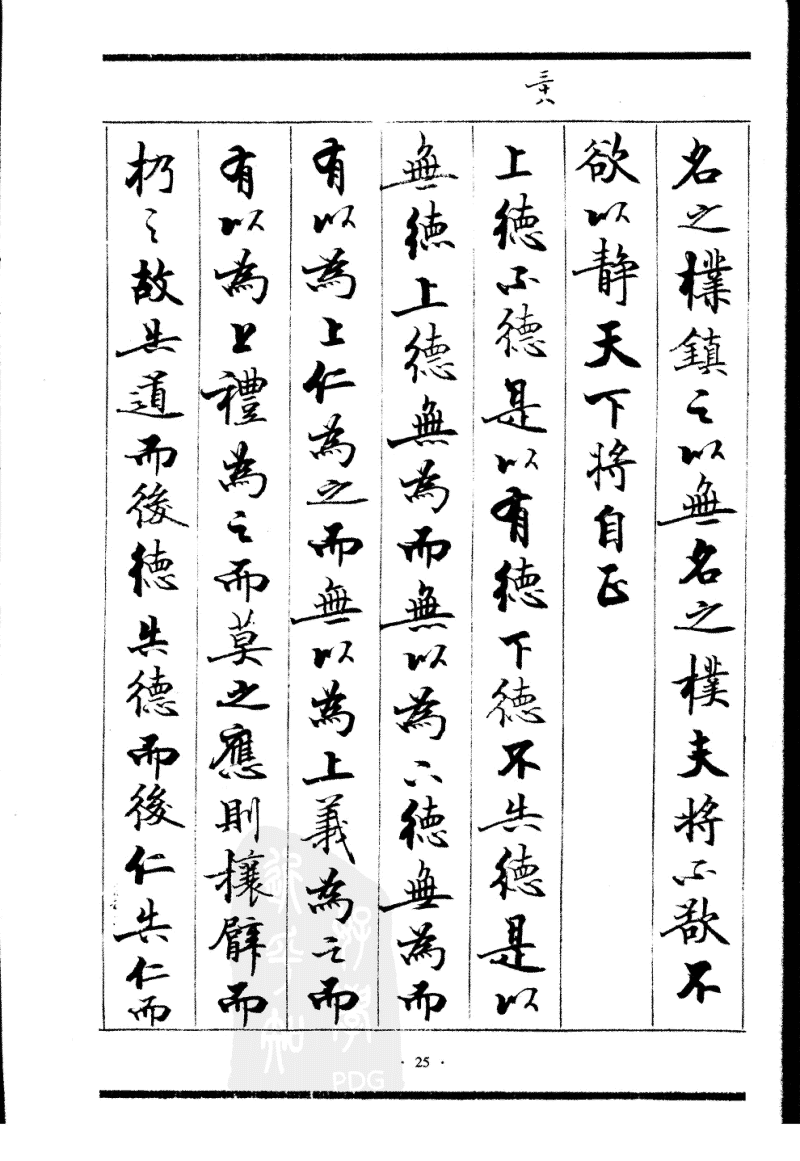 三十八
名之樸鎮之以無名之樸夫將不欲不
欲以静天下將自正
上德不德是以有德下德不失德是以
無德上德無為而無以為下德無為而
有以為上仁為之而無以為上義為之而
有以為上禮為之而莫之應則攘臂而
扔之故失道而後德失德而後仁失仁而
· 25 ·
PDG